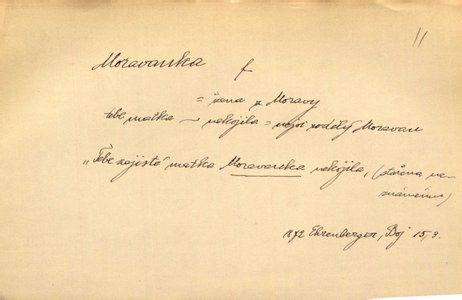 11
Moravanka f
= žena z Moravy
tebe matka – nekojila = nejsi rodilý Moravan
„Tebe zajisté matka Moravanka nekojila, (
známému)
1872 Ehrenberger, Boj 15,3.